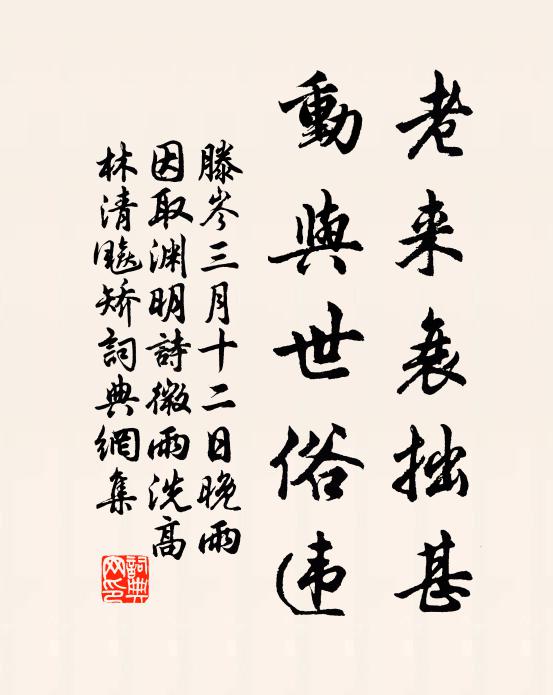 老来衰拙甚
動與世俗违
滕岑三月十二日晚雨
因取渊明詩微雨洗高
林清飚矫詞典網集
詞典网印